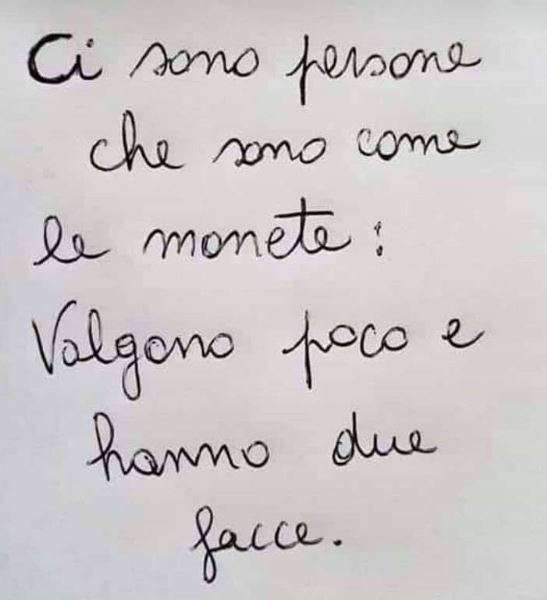 Ci sono persone
che sono come
le monete:
Valgono poco e
hanno due
facce.